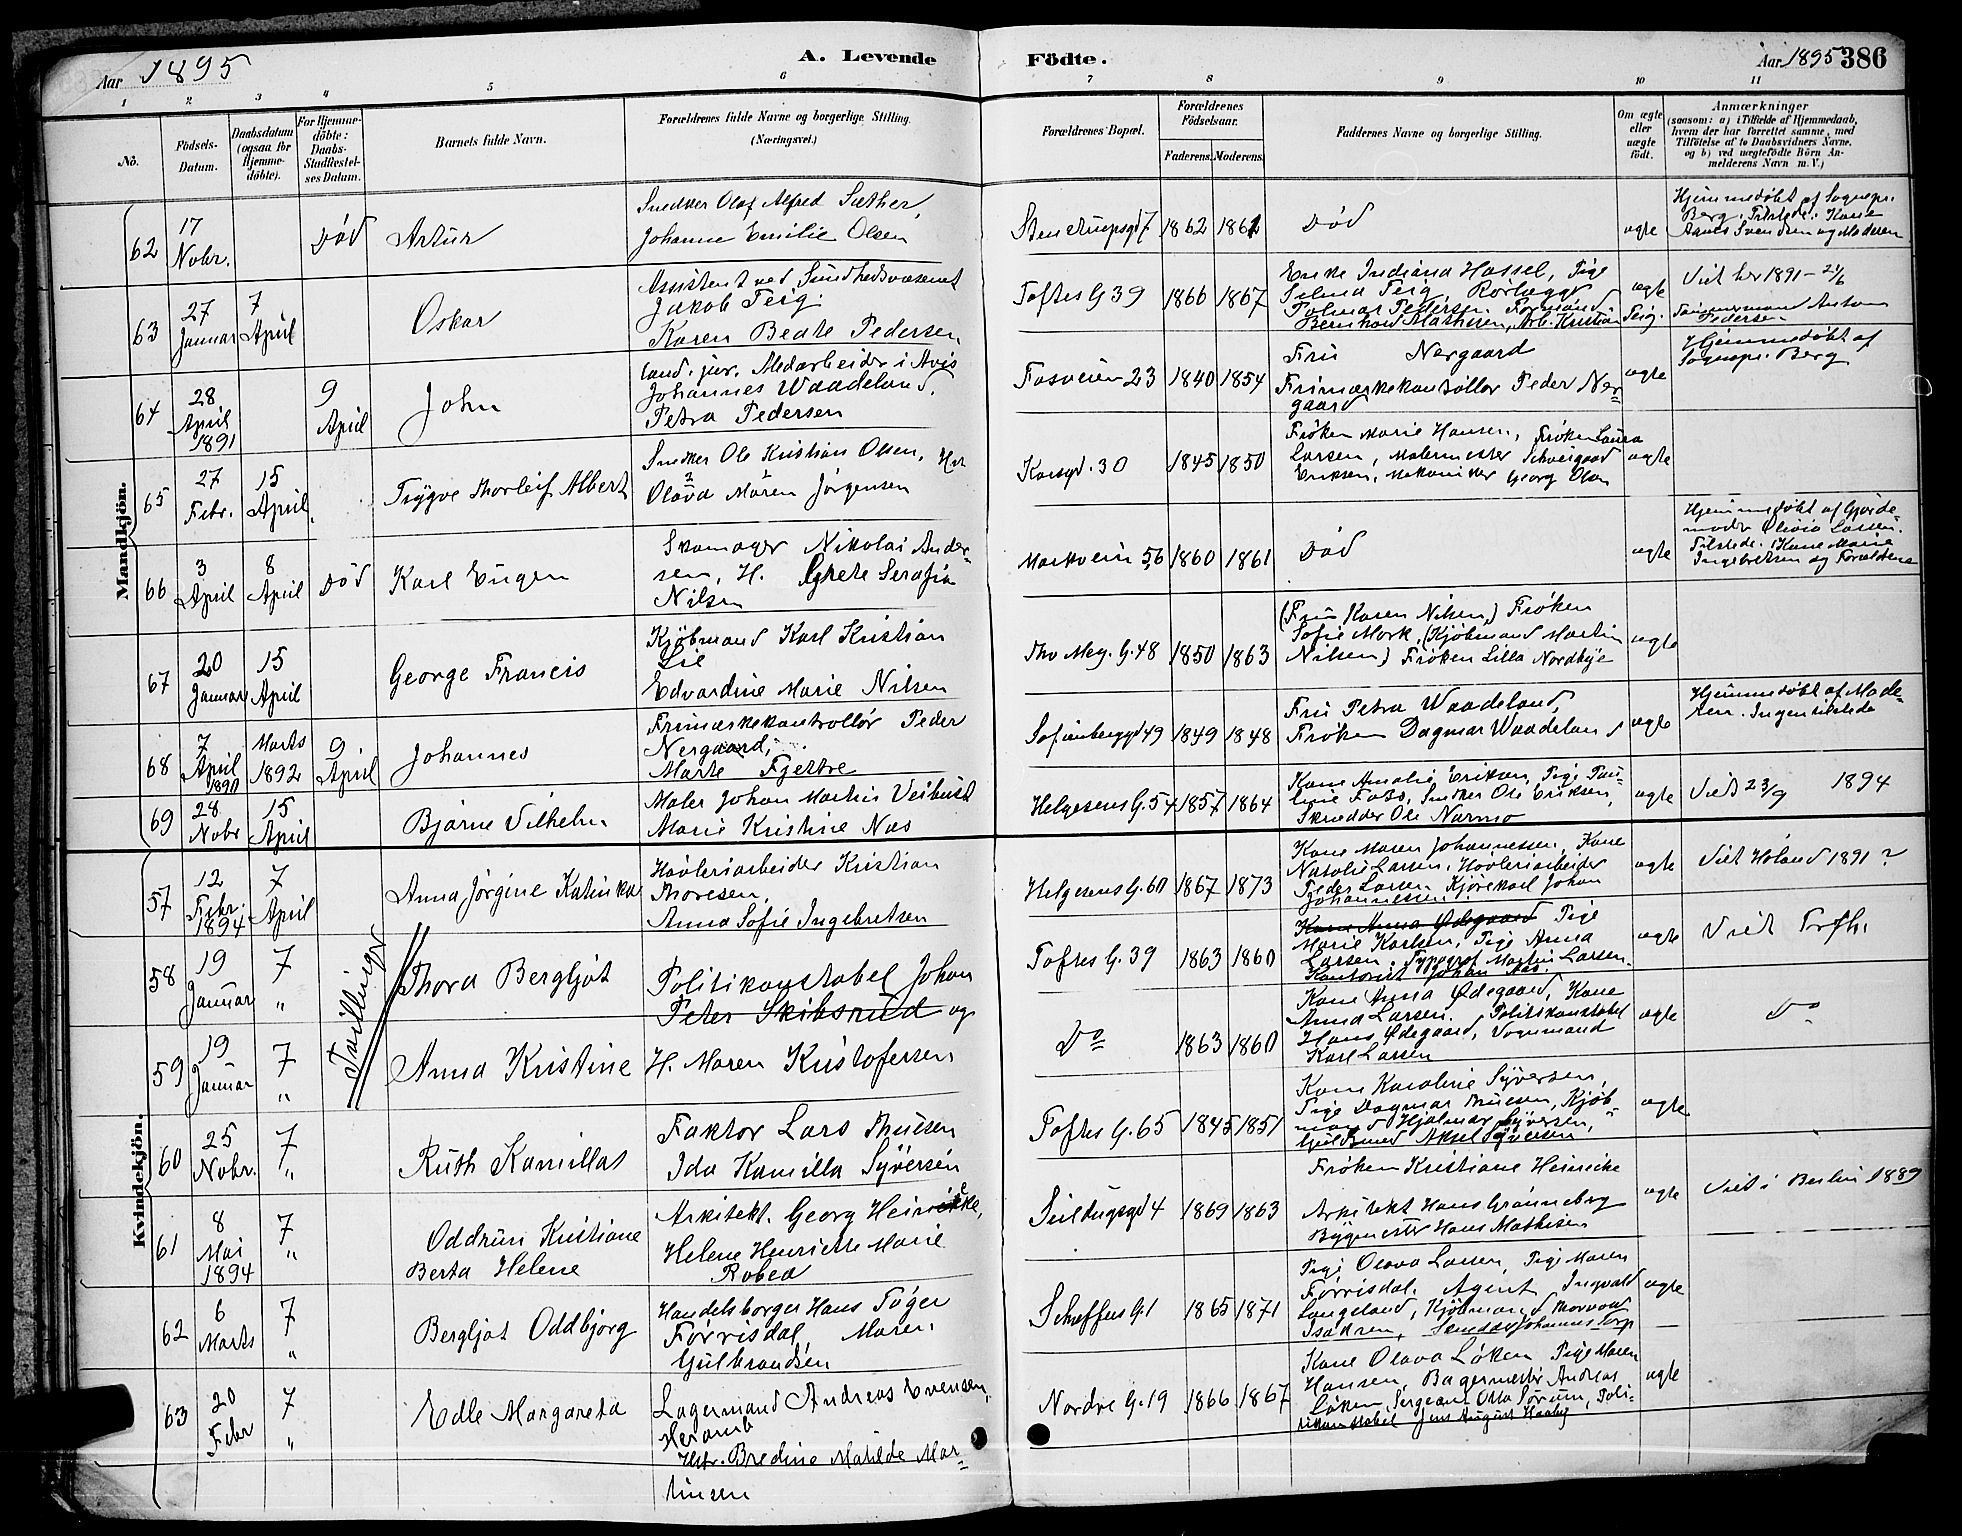 Aar 1895
A. Levende
Födte.
Aar 1895 386
1 2 3 4 5 6 7 8 9 10 11
No.
Födsels-
Datum.
Daabsdatum
(ogsaa for
Hjemme-
döbte).
For Hjemme-
döbte:
Daabs-
Stadfæstel-
ses Datum.
Barnets fulde Navn.
Forældrenes fulde Navne og borgerlige Stilling.
(Næringsvei.)
Forældrenes Bopæl.
Forældrenes
Födselsaar.
Faderens. Moderens.
Faddernes Navne og borgerlige Stilling.
Om ægte
eller
uægte
født.
Anmærkninger
(saasom: a) i Tilfælde af Hjemmedaab,
hvem der har forrettet samme, med
Tilföielse af to Daabsvidners Navne,
og b) ved uægtefödte Börn An-
melderens Navn m. V.)
Mandkjön.
62
17
Nobr.
Død
Artur
Snedker Olaf Alfred Sæther,
Johanne Emilie Olsen
Stenstrupsgd 7
1862
1861
Død
ægte
Hjemmedøbt af Sognepr.
Berg. Tilstede: Kone
Svendsen og Moderen
63
27
Januar
7
April
Oskar
Assistent ved Sundhedsvæsenet
Jakob Teig
Karen Beate Pedersen
Toftes G 39
1866
1867
Enke Indiana Hassel, Pige
Selma Teig, Rørlægger
Folmar Pedersen, Formand
Bernhard Mathisen, Arb. Kristian Teig.
ægte
Viet her 1891 - 21/6
Tømmermand Anton
Pedersen
64
28
April
1891
9
April
John
Cand. jur. Medarbeider i Avis
Johannes Waadeland,
Petra Pedersen
Fosveien 23
1840
1854
Fru Nergaard
Frimærkekontrollør Peder Ner-
gaard
ægte
Hjemmedøbt af
Sognepr. Berg
65
27
Febr.
15
April
Trygve Thorleif Albert
Snedker Ole Kristian Olsen, H.
Olava Maren Jørgensen
Korsgd. 30
1845
1850
Frøken Marie Hansen, Frøken Laura
Larsen, Malermester Schweigaard
Eriksen, Mekaniker Georg Olsen
ægte
66
3
April
8
April
Død
Karl Eugen
Skomager Nikolai Ander-
sen, H. Grete Serafia
Nilsen
Markveien 56
1860
1861
Død
ægte
Hjemmedøbt af Gjorde-
moder Olivia Larsen.
Tilstede: Kone Marie
Ingebretsen og Forældrene
67
20
Januar
15
April
George Francis
Kjøbmand Karl Kristian
Lie
Edvardine Marie Nilsen
Thv Mey. G. 48
1850
1863
(Fru Karen Nilsen,) Frøken
Sofie Mork, (Kjøbmand Martin
Nilsen) Frøken Lilla Nordbye
ægte
68
7
April
1890
Marts
1892
9
April
Johannes
Frimærkekontrollør Peder
Nergaard,
Marte Fjettre
Sofienberggd 49
1849
1848
Fru Petra Waadeland,
Frøken Dagmar Waadeland
ægte
Hjemmedøbt af Mode-
ren. Ingen tilstede
69
28
Nobr
15
April
Bjarne Vilhelm
Maler Johan Martin Veibust
Marie Kristine Næs
Helgesens G. 54
1857
1864
Kone Amalie Eriksen, Pige Pau-
line Foss, Snedker Ole Eriksen,
Skrædder Ole Narmo
ægte
Viet 23/9 1894
Kvindekjön.
57
12
Febr.
1894
7
April
Anna Jørgine Katinka
Høvleriarbeider Kristian
Thoresen,
Anna Sofie Ingebretsen
Helgesens G. 60
1867
1873
Kone Maren Johannessen, Kone
Natalie Larsen, Høvleriarbeider
Peder Larsen, Kjørekarl Johan
Johannessen
ægte
Viet Høland 1891?
58
19
Januar
7
"
Tvillinger
Thora Bergljot
Politikonstabel Johan
Peter Skibsrud og
Toftes G. 39
1863
1860
Kone Anna Ødegaard Pige
Marie Karlsen, Pige Anna
Larsen, Typograf Martin Larsen.
Kontorist Johan Aas.
ægte
Viet Trefh.
59
19
Januar
7
"
Anna Kristine
H. Maren Kristofersen
Do
1863
1860
Kone Anna Ødegaard, Kone
Anna Larsen. Politikonstabel
Hans Ødegaard, Vognmand
Karl Larsen
ægte
Do
60
25
Nobr.
7
"
Ruth Kamilla
Faktor Lars Thuesen
Ida Kamilla Syversen
Toftes G. 65
1845
1851
Kone Karoline Syversen,
Pige Dagmar Thuesen, Kjøb-
mand Hjalmar Syversen,
Guldsmed Aksel Syversen
ægte
61
8
Mai
1894
7
"
Oddrun Kristiane
Berta Helene
Arkitekt. Georg Heinricke,
Helene Henriette Marie
Robea
Seildugsgd 4
1869
1863
Frøken Kristiane Heinricke
Arkitekt Hans Grønneberg
Bygmester Hans Mathisen
ægte
Viet i Berlin 1889
62
6
Marts
7
"
Bergljot Oddbjørg
Handelsborger Hans Tøger
Førrisdal, Maren
Gulbrandsen
Scheffers G. 1
1865
1871
Pige Olava Larsen, Pige Maren
Førrisdal. Agent Ingvald
Langeland, Kjøbmand Thorvald
Isaksen, Skrædder Johannes Torp
ægte
63
20
Febr
7
"
Edle Margareta
Lagermand Andreas Evensen,
Heramb
Htr. Bredine Matilde Mar-
tinsen
Nordre G. 19
1866
1867
Kone Olava Løken, Pige Maren
Hansen, Bagermester Andreas
Løken, Sergeant Otto Sørum, Poli-
tikonstabel Jens August Haaby
ægte